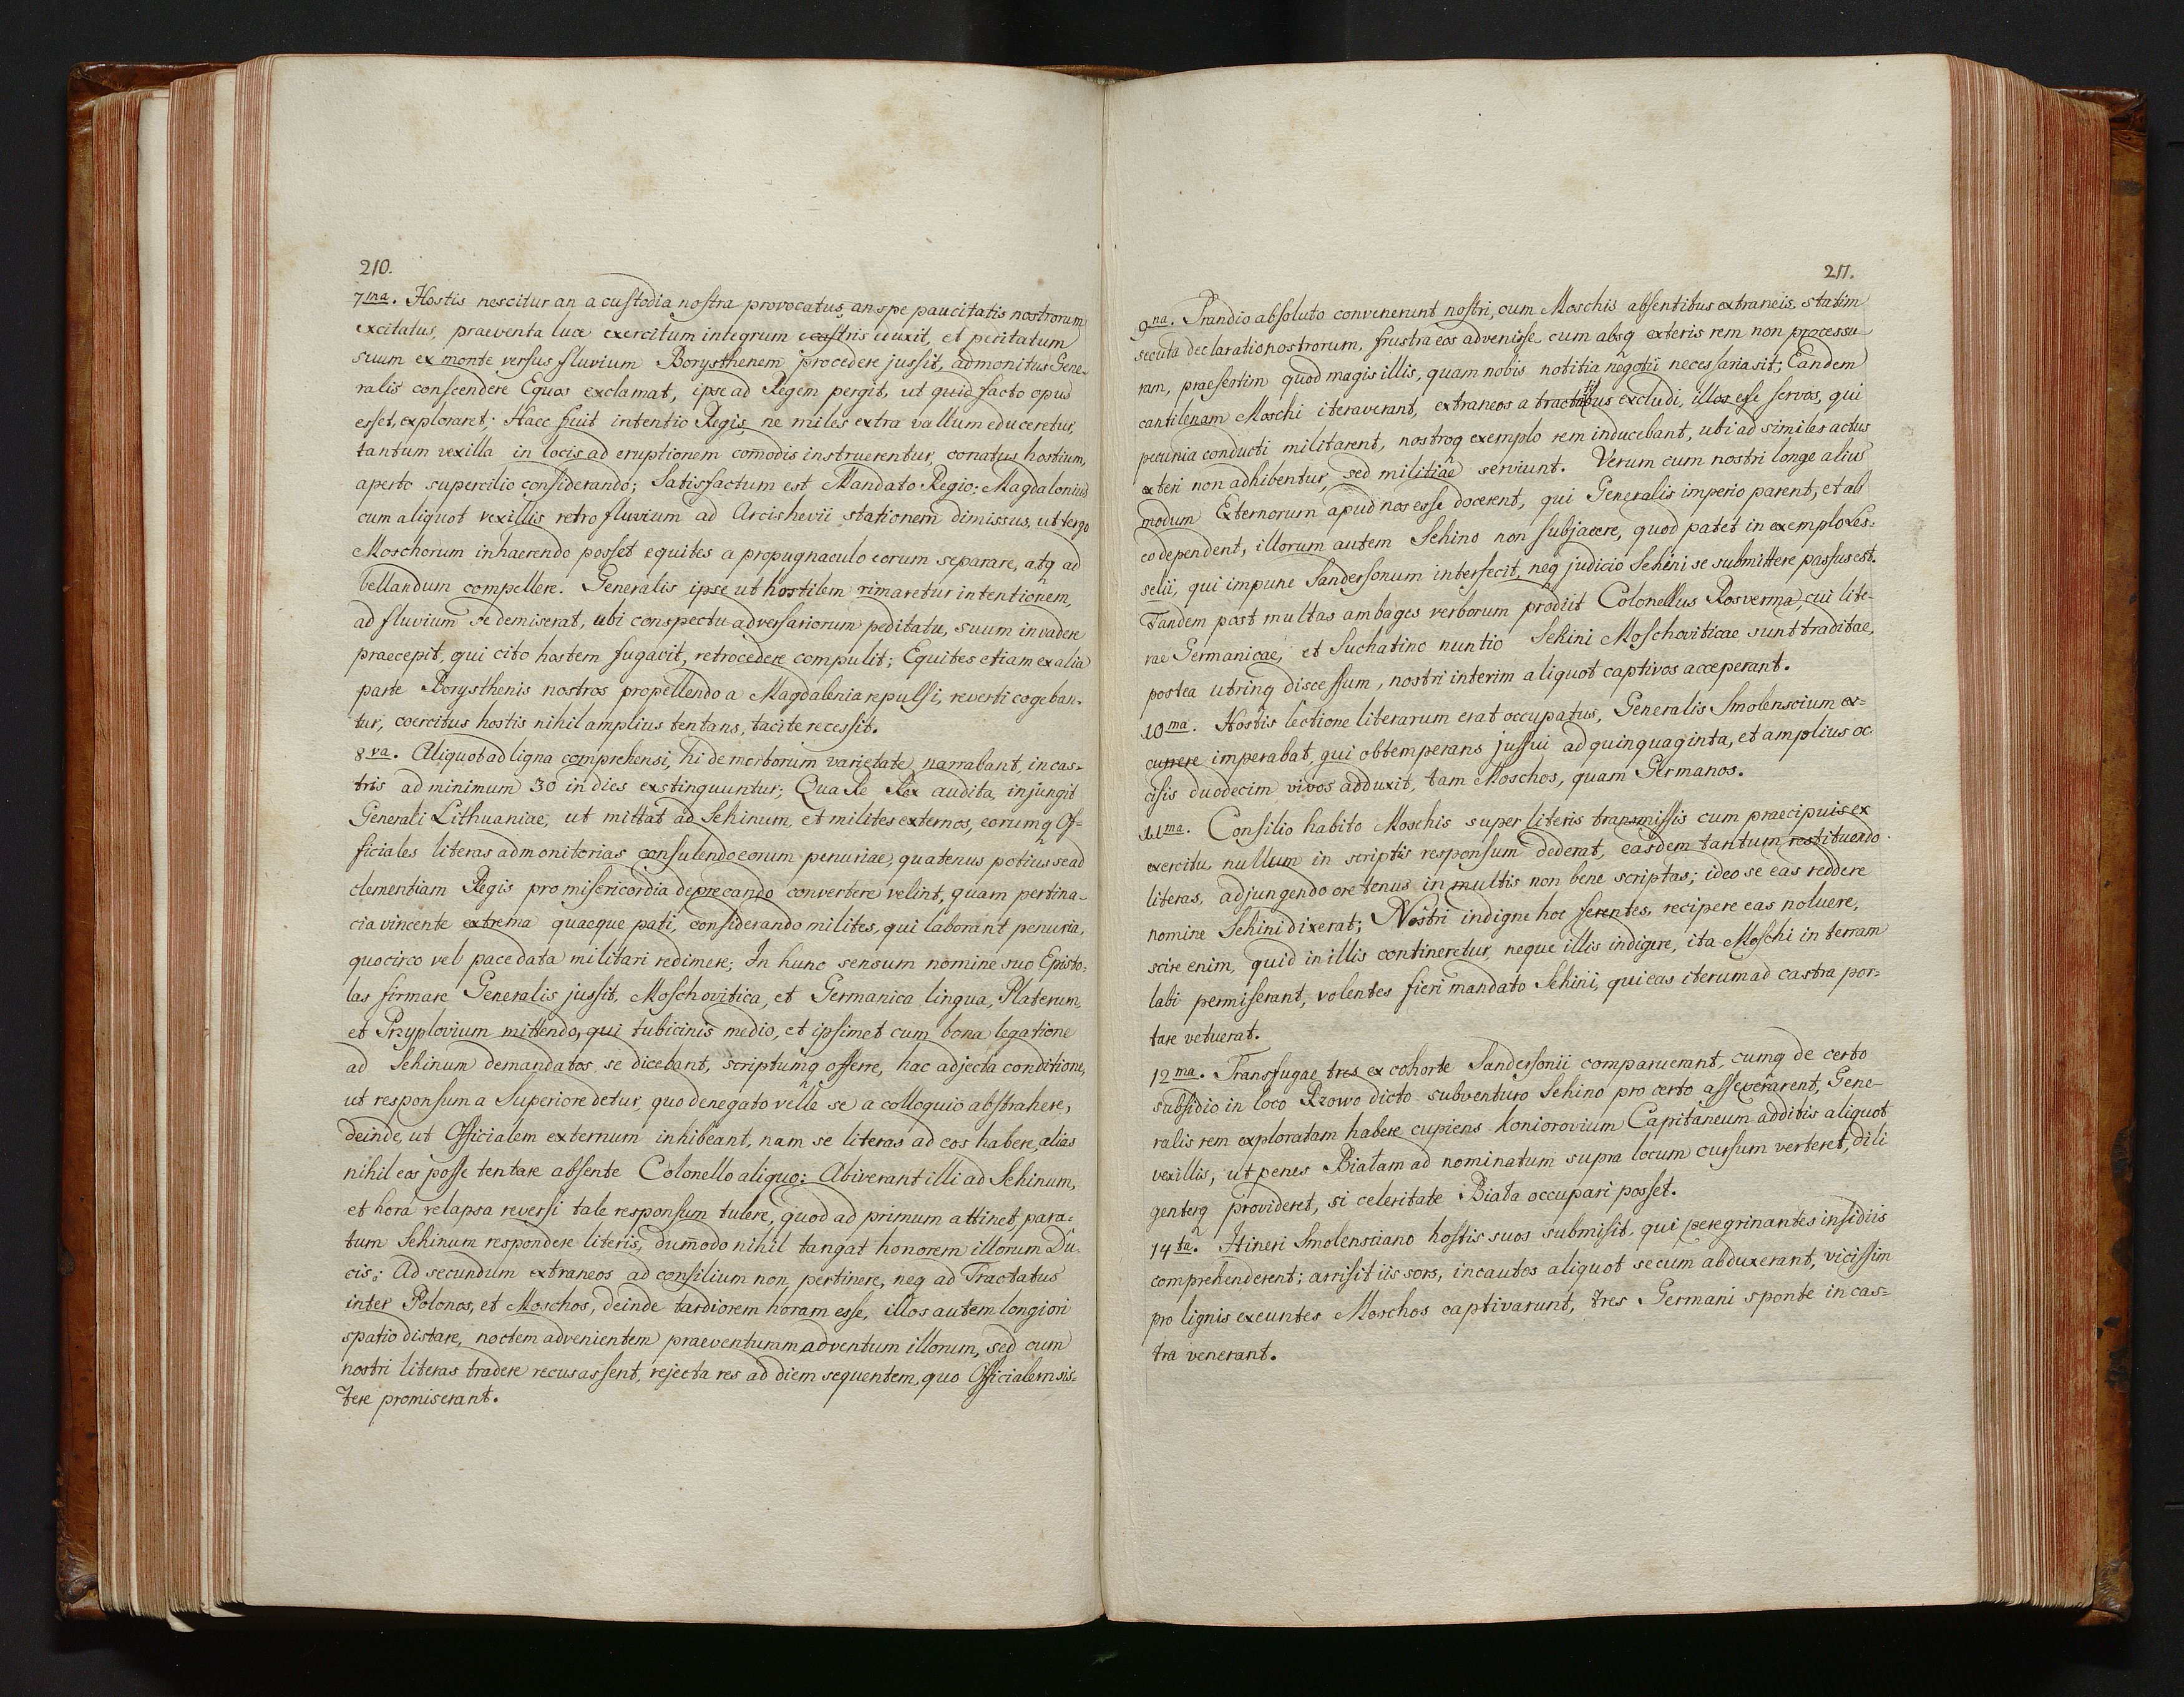 210.
7ma. Hostis nescitur an a custodia nostra provocatus, an spe paucitatis nostrorum
excitatus, praeventa luce exercitum integrum e castris eduxit, et peditatum
suum ex monte versus fluvium Borysthenem procedere jussit, admonitus Gene-
ralis conscendere Equos exclamat, ipse ad Regem pergit, ut quid facto opus
esset, exploraret; Haec fuit intentio Regis, ne miles extra vallum educeretur,
tantum vexilla in locis ad eruptionem com̄odis instruerentur, conatus hostium,
aperto supercilio considerando; Satisfactum est Mandato Regio; Magdalonius
cum aliquot vexillis retro fluvium ad Arcishevii stationem dimissus, ut tergo
Moschorum inhaerendo posset equites a propugnaculo eorum separare, atq ad
bellandum compellere. Generalis ipse ut hostilem rimaretur intentionem,
ad fluvium se demiserat, ubi conspectu adversariorum peditatu, suum invadere
praecepit, qui cito hostem fugavit, retrocedere compulit; Equites etiam ex alia
parte Borysthenis nostros propellendo a Magdalenia repulsi, reverti cogeban-
tur, coercitus hostis nihil amplius tentans, tacite recessit.
8va. Aliquot ad ligna comprehensi, hi de morborum varietate narrabant, in cas-
tris ad minimum 30 in dies exstinquuntur; Qua Re Rex audita, injungit
Generali Lithuaniae, ut mittat ad Sehinum, et milites externos, eorumq Of-
ficiales literas admonitorias consulendo eorum penuriae, quatenus potius se ad
clementiam Regis pro misericordia deprecando convertere velint, quam pertina-
cia vincente extrema quaeque pati, considerando milites, qui laborant penuria,
quocirco vel pace data militari redimere; In hunc sensum nomine suo Episto-
las firmare Generalis jussit, Moschovitica, et Germanica lingua, Platerum,
et Przyplovium mittendo, qui tubicinis medio, et ipsimet cum bona legatione
ad Sehinum demandatos se dicebant, scriptumq offerre, hac adjecta conditione,
ut responsum a Superiore detur, quo denegato velle se a colloquio abstrahere,
deinde, ut Officialem externum inhibeant, nam se literas ad eos habere, alias
nihil eos posse tentare absente Colonello aliquo; Abiverant illi ad Sehinum,
et hora relapsa reversi tale responsum tulere, quod ad primum attinet, para-
tum Sehinum respondere literis, dum̄odo nihil tangat honorem illorum Du-
cis; Ad secundum extraneos ad consilium non pertinere, neq ad Tractatus
inter Polonos, et Moschos, deinde tardiorem horam esse, illos autem longiori
spatio distare, noctem advenientem praeventuram adventum illorum, sed cum
nostri literas tradere recusassent, rejecta res ad diem sequentem, quo Officialem sis-
tere promiserant.
211.
9na. Prandio absoluto convenerunt nostri, cum Moschis absentibus extraneis, statim
secuta declaratio nostrorum, frustra eos advenisse, cum absq exteris rem non processu-
ram, praesertim quod magis illis, quam nobis notitia negotii necessaria sit; Eandem
cantilenam Moschi iteraverant, extraneos a tractatibus excludi, illos esse servos, qui
pecunia conducti militarent, nostroq exemplo rem inducebant, ubi ad similes actus
exteri non adhibentur, sed militiae serviunt. Verum cum nostri longe alius
modum Externorum apud nos esse docerent, qui Generalis imperio parent, et ab
eo dependent, illorum autem Sehino non subjacere, quod patet in exemplo Les-
selii, qui impune Sandersonum interfecit, neq judicio Sehini se submittere passus est.
Tandem post multas ambages verborum prodiit Colonellus Rosverma, cui lite-
rae Germanicae, et Suchatino nuntio Sehini Moschoviticae sunt traditae,
postea utrinq discessum, nostri interim aliquot captivos acceperant.
10ma. Hostis lectione literarum erat occupatus, Generalis Smolenscium ex-
currere imperabat, qui obtemperans jussui ad quinquaginta, et amplius oc-
cisis duodecim vivos adduxit, tam Moschos, quam Germanos.
11ma. Consilio habito Moschis super literis transmissis cum praecipuis ex
exercitu, nullum in scriptis responsum dederat, easdem tantum restituendo
literas, adjungendo ore tenus in multis non bene scriptas; ideo se eas reddere
nomine Sehini dixerat; Nostri indigne hoc ferentes, recipere eas noluere,
scire enim, quid in illis contineretur, neque illis indigere, ita Moschi in terram
labi permiserant, volentes fieri mandato Sehini, qui eas iterum ad castra por-
tare vetuerat.
12ma. Transfugae tres ex cohorte Sandersonii comparuerant, cumq de certo
subsidio in loco Rzowo dicto subventuro Sehino pro certo asseverarent, Gene-
ralis rem exploratam habere cupiens Koniorovium Capitaneum additis aliquot
vexillis, ut penes Białam ad nominatum supra locum cursum verteret, dili
genterq provideret, si celeritate Biała occupari posset.
14ta. Itineri Smolensciano hostis suos submisit, qui peregrinantes insidiis
comprehenderent; arrisit iis sors, incautos aliquot secum abduxerant, vicissim
pro lignis exeuntes Moschos captivarunt, tres Germani sponte in cas-
tra venerant.